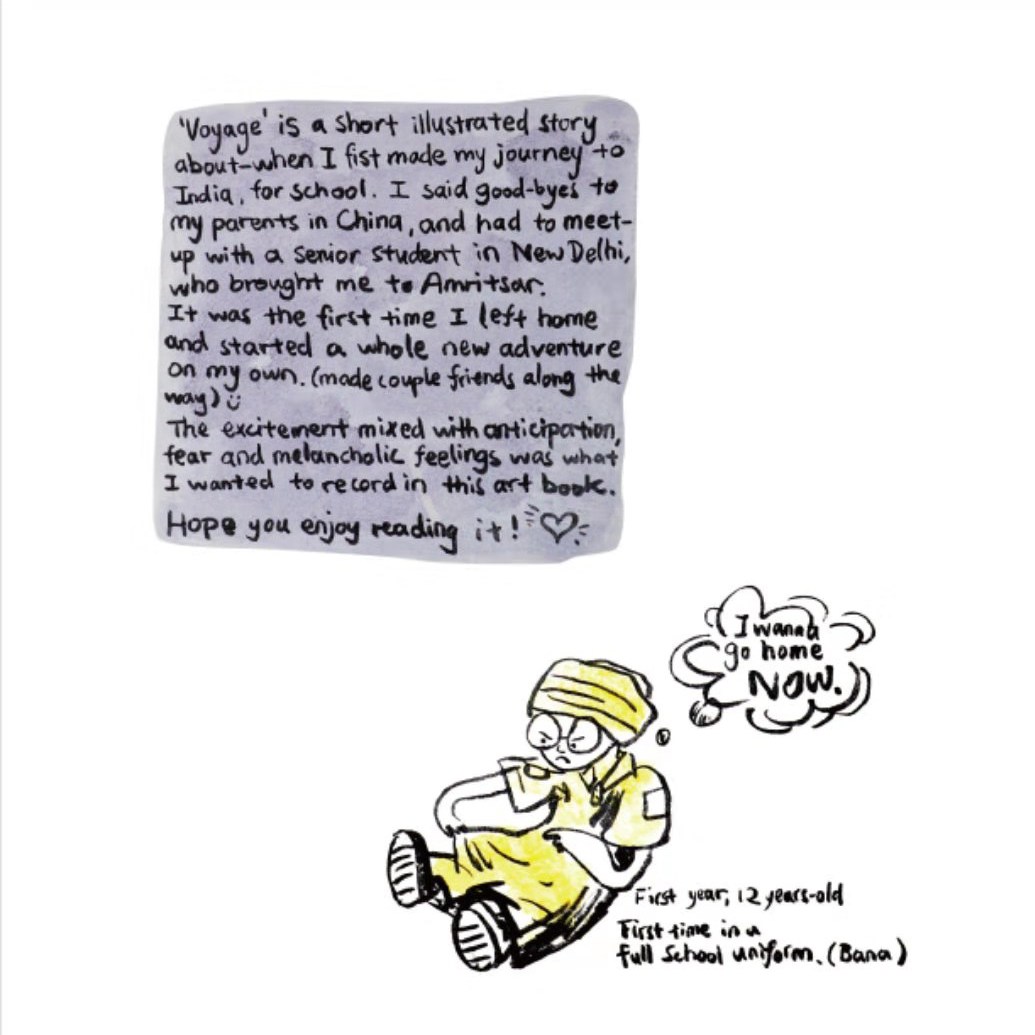 'Voyage' is a short illustrated story
about-when I fist made my journey to
India, for school. I said good-byes to
my parents in China, and had to meet-
up with a senior student in New Delhi,
who brought me to Amritsar.
It was the first time I left home
and started a whole new adventure
on my own. (made couple friends along the
way)
The excitement mixed with anticipation,
fear and melancholic feelings was what
I wanted to record in this art book.
Hope you enjoy reading it!
I wanna
go home
NOW.
First year, 12 years-old
First time in a
full school uniform. (Bana)